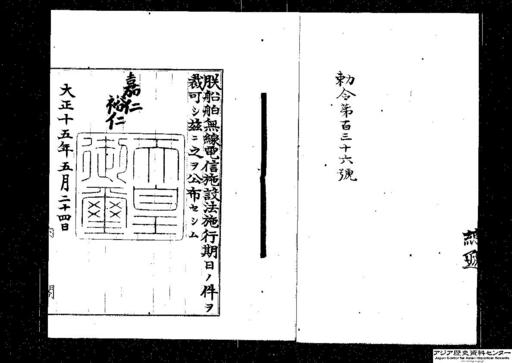 勅令第百三十六號
朕船舶無線電信施設法施行期日ノ件ヲ
裁可シ茲ニ之ヲ公布セシム
嘉仁
裕仁
天皇御璽
大正十五年五月二十四日
内閣
アジア歴史資料センター
Japan Center for Asian Historical Records